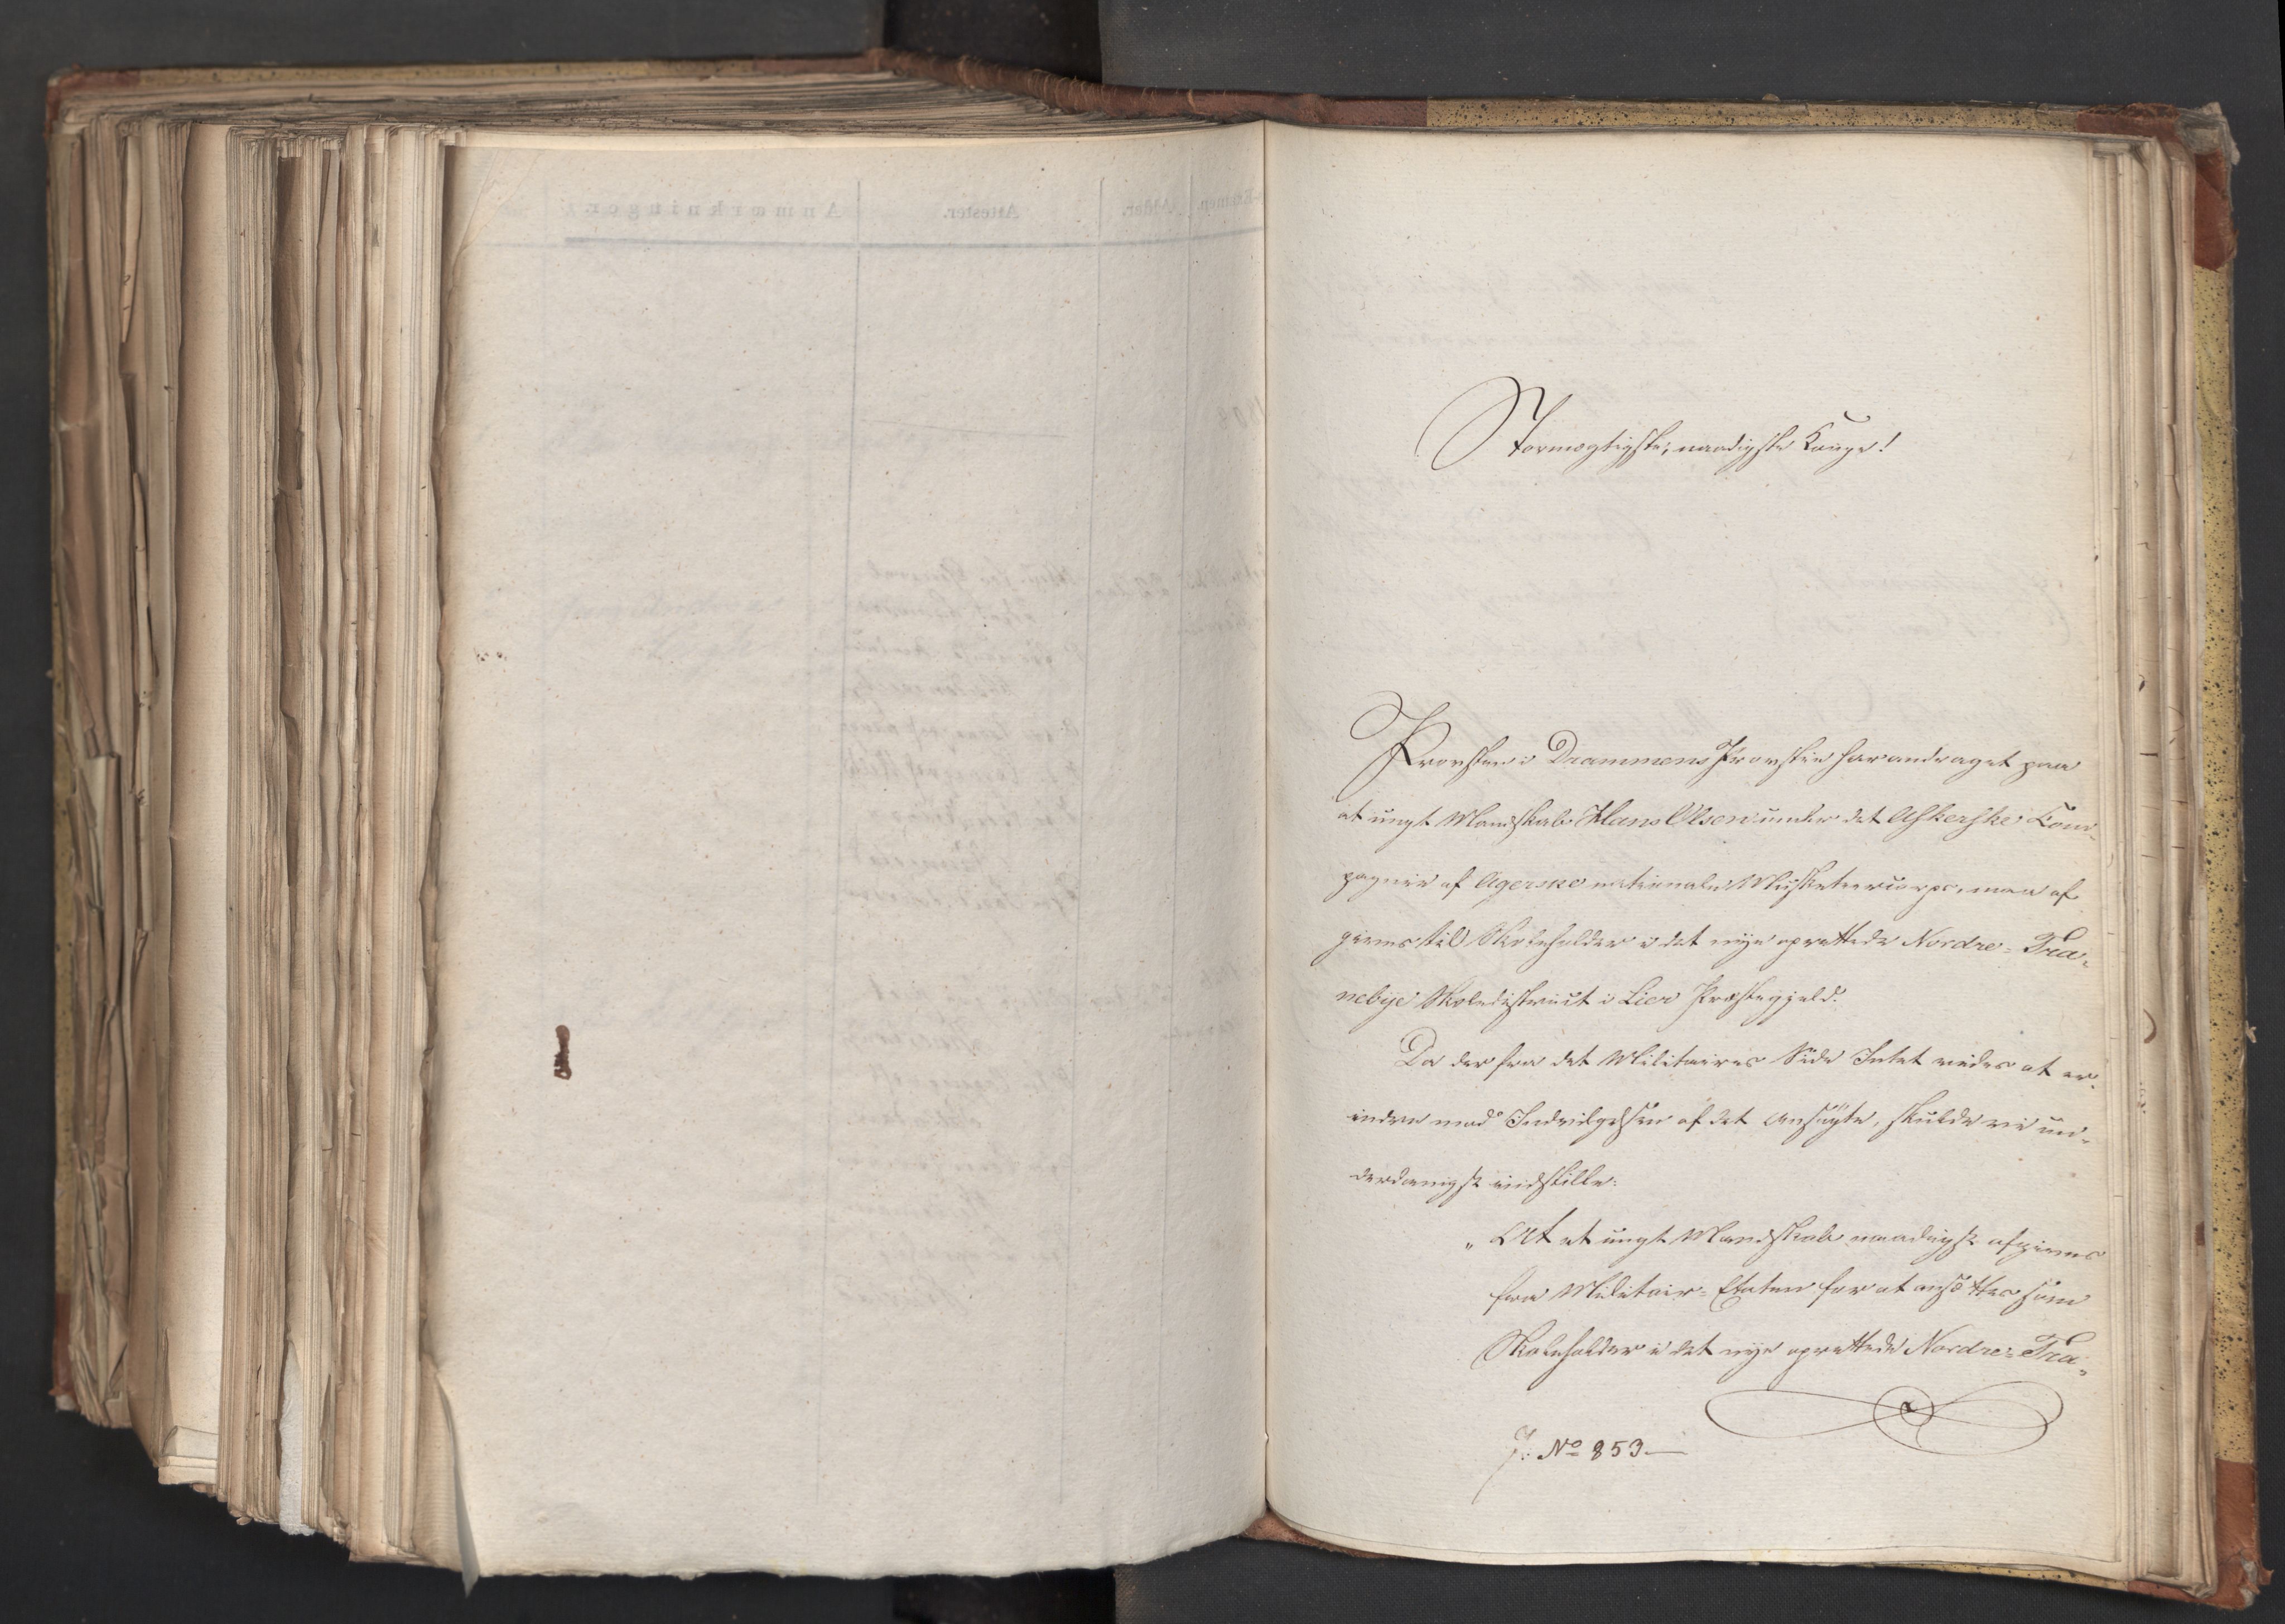 Stormægtigste, naadigste Konge!
Provsten i Drammens Provstie har andraget paa
at ungt Mandskab Hans Olsen under det Askerske Com-
pagnie af Agerske nationale Musketeercorps, maa af-
gives til Skoleholder i det nye oprettede Nordre-Tra-
nebye Skoledistrict i Lier Præstegjeld.
Da der fra det Militaires Side Intet vides at er-
indre mod Indvilgelsen af det Ansøgte, skulde vi un-
derdanigst indstille:
„At et ungt Mandskab naadigst afgives
fra Militair-Etaten for at ansættes som
Skoleholder i det nye oprettede Nordre-Tra-
J: No 853